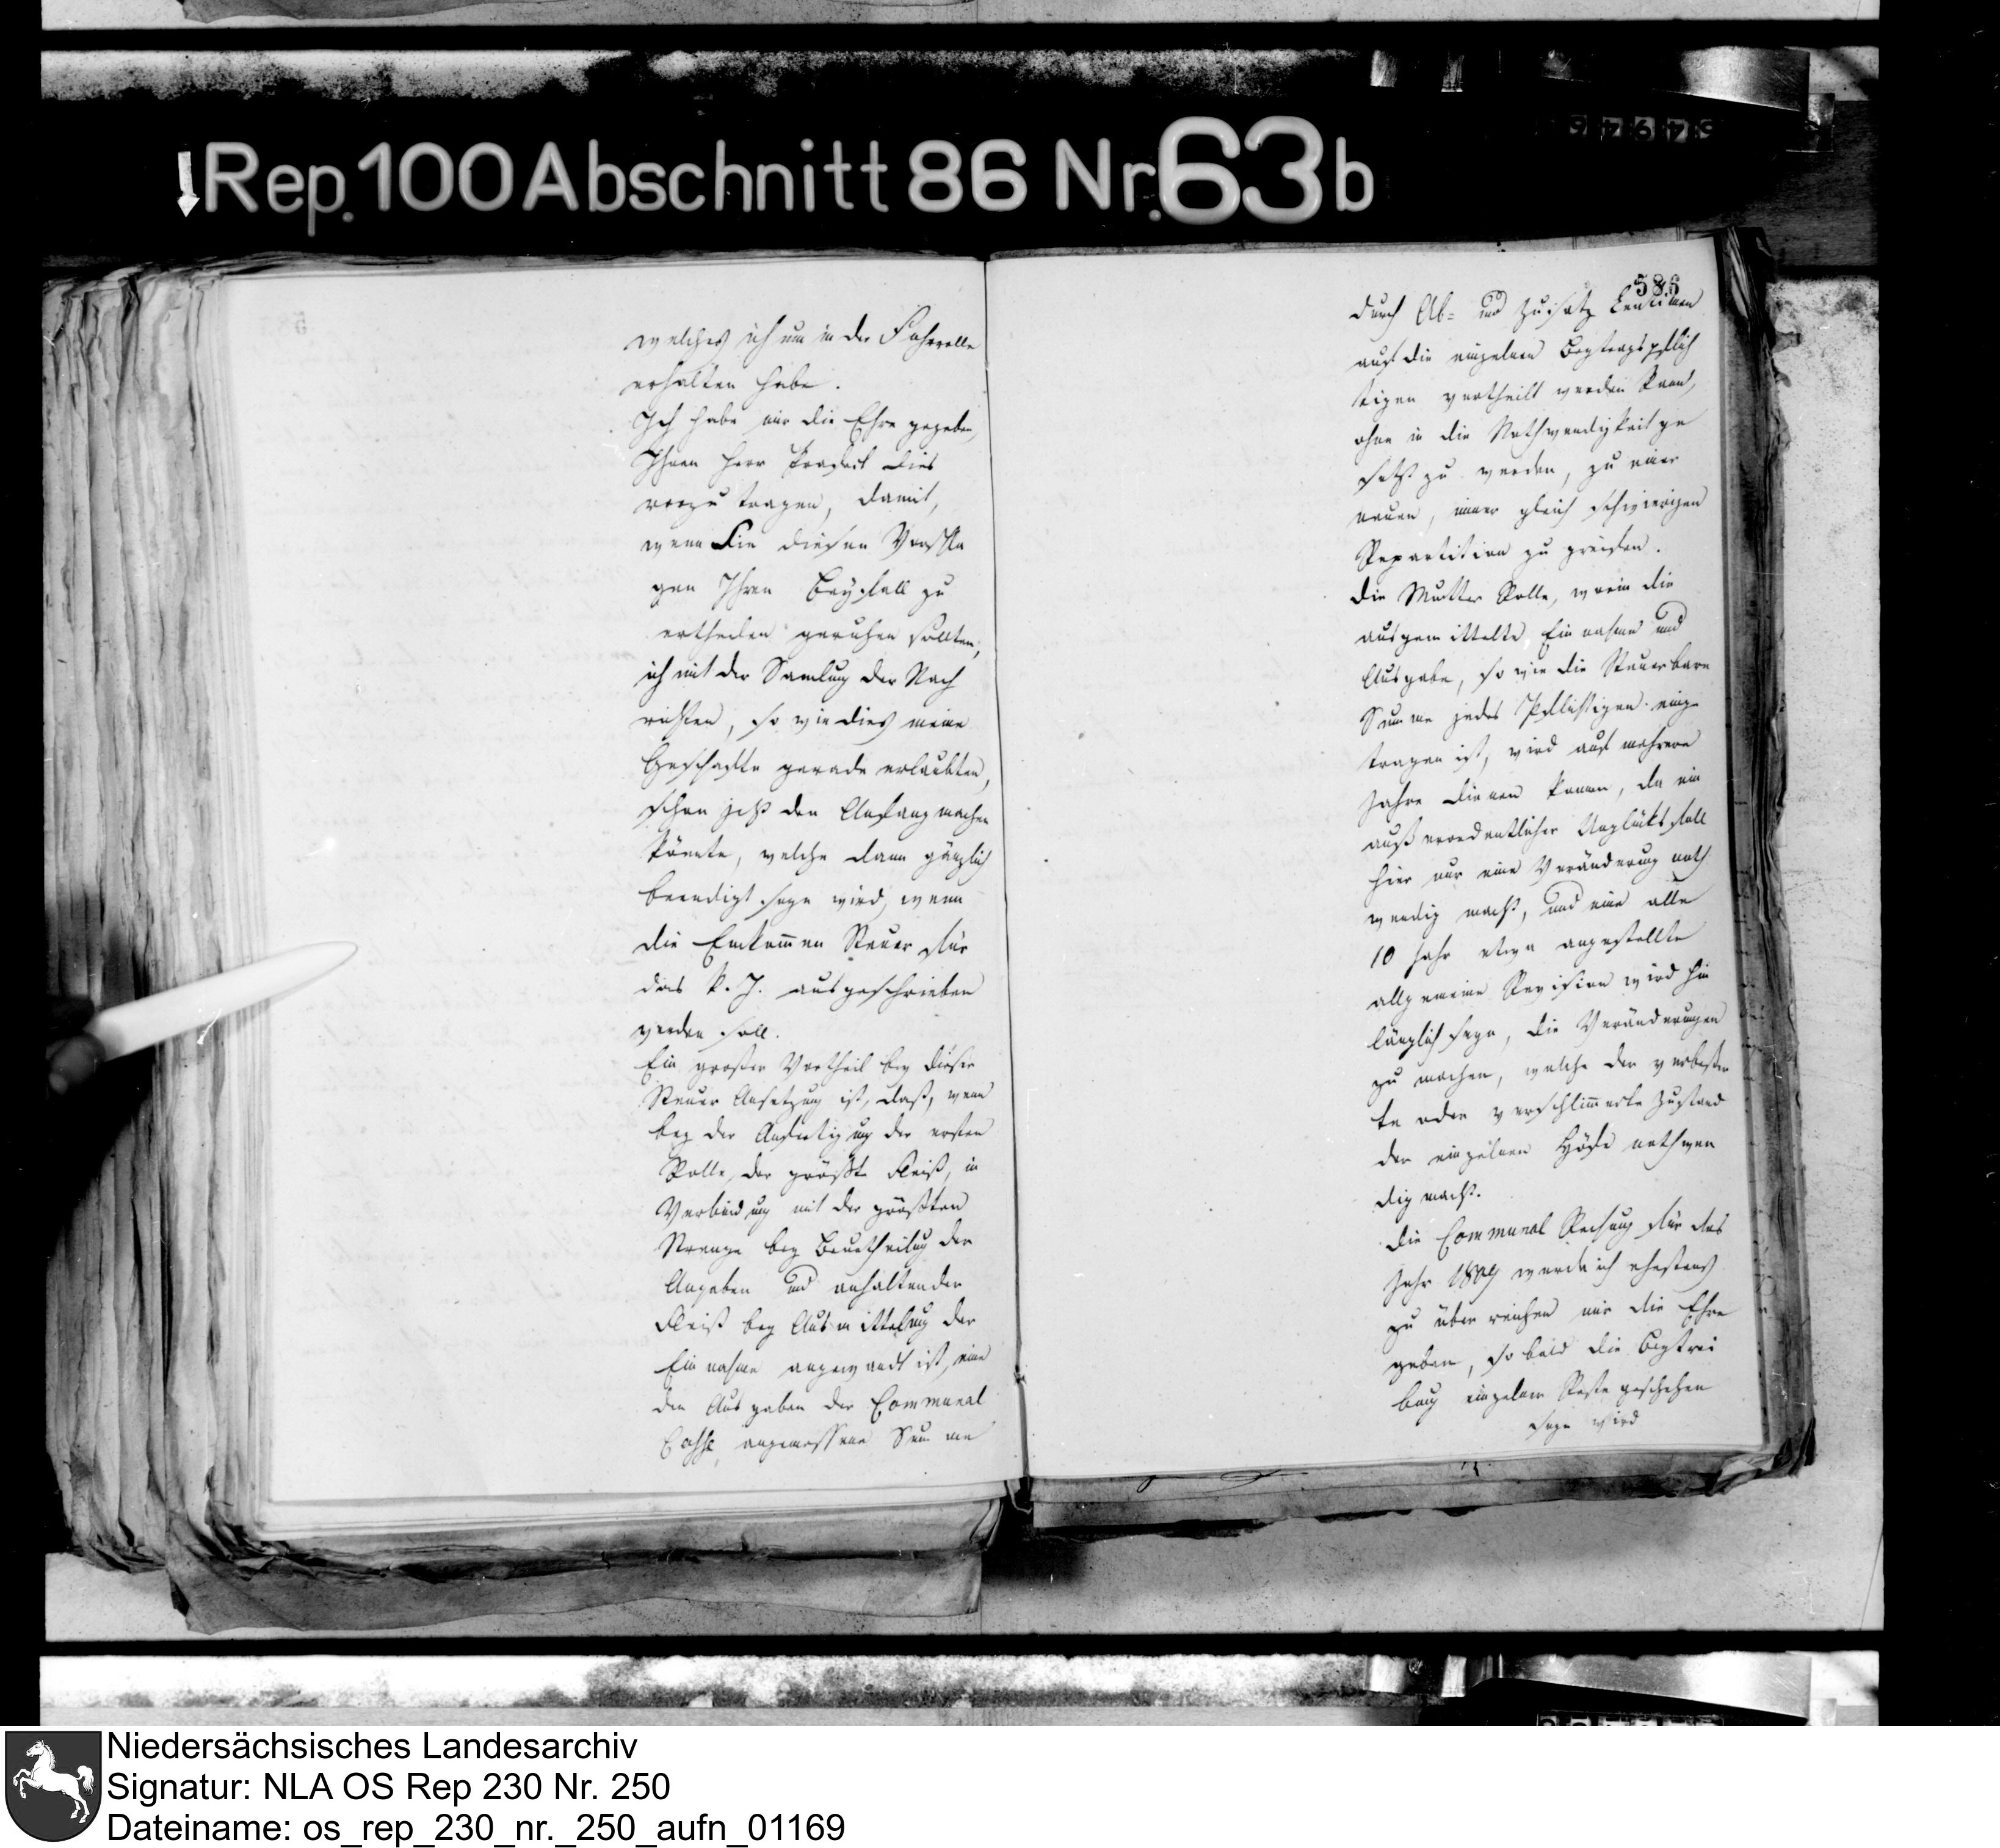 Rep. 100 Abschnitt 86 Nr. 63b
welches ich nun in der
erhalten habe.
Ich habe mir die Ehre gegeben,
Ihnen Herr Praefect dies
vorzutragen, damit,
wenn Sie diesen Vorschlä
gen Ihren Beyfall zu
ertheilen geruhen sollten,
ich mit der Samlung der Nach
richten, so wie dies meine
Geschäfte gerade erlaubten,
schon jetzt den Anfang machen
könnte, welche dann gänzlich
beendigt seyn wird, wenn
die Einkommen Steuer für
das k. J. ausgeschrieben
werden soll.
Ein großer Vortheil bey dieser
Steuer Ansetzung ist, daß, wenn
bey der Anfertigung der ersten
Rolle, der größte Fleiß, in
Verbindung mit der größten
Strenge bey Beurtheilung der
Angaben und anhaltender
Fleiß bey Ausmittelung der
Einnahme angewandt ist, eine
den Ausgaben der Communal
Casse angemessene Summe
586
durch Ab- und Zusatz Centimen
auf die einzelnen Beytragspflich
tigen vertheilt werden kann,
ohne in die Nothwendigkeit ge
setzt zu werden, zu einer
neuen, immer gleich schwierigen
Repartition zu greifen.
Die Mutter Rolle, worin die
ausgemittelte Einnahme und
Ausgabe, so wie die Steuerbare
Summe jedes Pflichtigen einge
tragen ist, wird auf mehrere
Jahre dienen können, da ein
außerordentlicher Unglücksfall
hier nur eine Veränderung noth
wendig macht, und eine alle
10 Jahr etwa angestellte
allgemeine Revision wird hin
länglich seyn, die Veränderungen
zu machen, welche der verbesser
te oder verschlimmerte Zustand
der einzelnen Höfe nothwen
dig macht.
Die Communal Rechnung für das
Jahr 1809 werde ich ehestens
zu überreichen mir die Ehre
geben, so bald die Beytrei
bung einzelner Reste geschehen
seyn wird
Niedersächsisches Landesarchiv
Signatur: NLA OS Rep 230 Nr. 250
Dateiname: os_rep_230_nr._250_aufn_01169